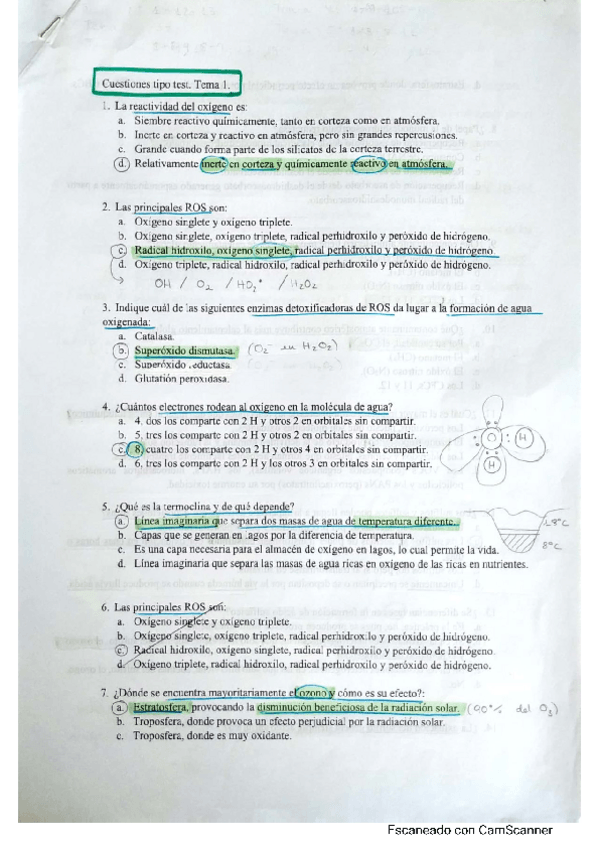 Cuestiones tipo test. Tema 1.
1. La reactividad del oxígeno es:
a. Siembre reactivo químicamente, tanto en corteza como en atmósfera.
b. Inerte en corteza y reactivo en atmósfera, pero sin grandes repercusiones.
c. Grande cuando forma parte de los silicatos de la corteza terrestre.
d. Relativamente inerte en corteza y químicamente reactivo en atmósfera.
2. Las principales ROS son:
a. Oxígeno singlete y oxígeno triplete.
b. Oxígeno singlete, oxígeno triplete, radical perhidroxilo y peróxido de hidrógeno.
c. Radical hidroxilo, oxígeno singlete, radical perhidroxilo y peróxido de hidrógeno.
d. Oxígeno triplete, radical hidroxilo, radical perhidroxilo y peróxido de hidrógeno.
OH / O2 / HO2• / H2O2
3. Indique cuál de las siguientes enzimas detoxificadoras de ROS da lugar a la formación de agua
oxigenada:
a. Catalasa.
b. Superóxido dismutasa. (O2⁻ en H2O2)
c. Superóxido reductasa.
d. Glutatión peroxidasa.
4. ¿Cuántos electrones rodean al oxígeno en la molécula de agua?
a. 4, dos los comparte con 2 H y otros 2 en orbitales sin compartir.
b. 5, tres los comparte con 2 H y otros 2 en orbitales sin compartir.
c. 8, cuatro los comparte con 2 H y otros 4 en orbitales sin compartir.
d. 6, tres los comparte con 2 H y los otros 3 en orbitales sin compartir.
O H
H
5. ¿Qué es la termoclina y de qué depende?
a. Línea imaginaria que separa dos masas de agua de temperatura diferente.
b. Capas que se generan en lagos por la diferencia de temperatura.
c. Es una capa necesaria para el almacén de oxígeno en lagos, lo cual permite la vida.
d. Línea imaginaria que separa las masas de agua ricas en oxígeno de las ricas en nutrientes.
18°C
8°C
6. Las principales ROS son:
a. Oxígeno singlete y oxígeno triplete.
b. Oxígeno singlete, oxígeno triplete, radical perhidroxilo y peróxido de hidrógeno.
c. Radical hidroxilo, oxígeno singlete, radical perhidroxilo y peróxido de hidrógeno.
d. Oxígeno triplete, radical hidroxilo, radical perhidroxilo y peróxido de hidrógeno.
7. ¿Dónde se encuentra mayoritariamente el ozono y cómo es su efecto?:
a. Estratosfera, provocando la disminución beneficiosa de la radiación solar. (90% del O3)
b. Troposfera, donde provoca un efecto perjudicial por la radiación solar.
c. Troposfera, donde es muy oxidante.
Escaneado con CamScanner